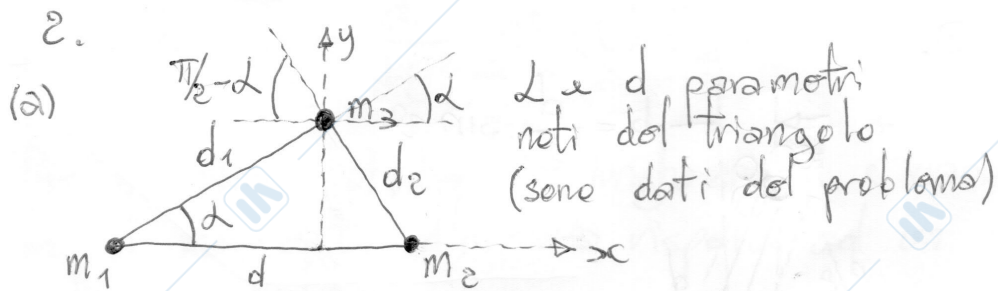 2.
(a)
y
π/2-α
m3
α
d1
d2
α
m1
d
m2
x
α e d parametri
noti del triangolo
(sono dati del problema)